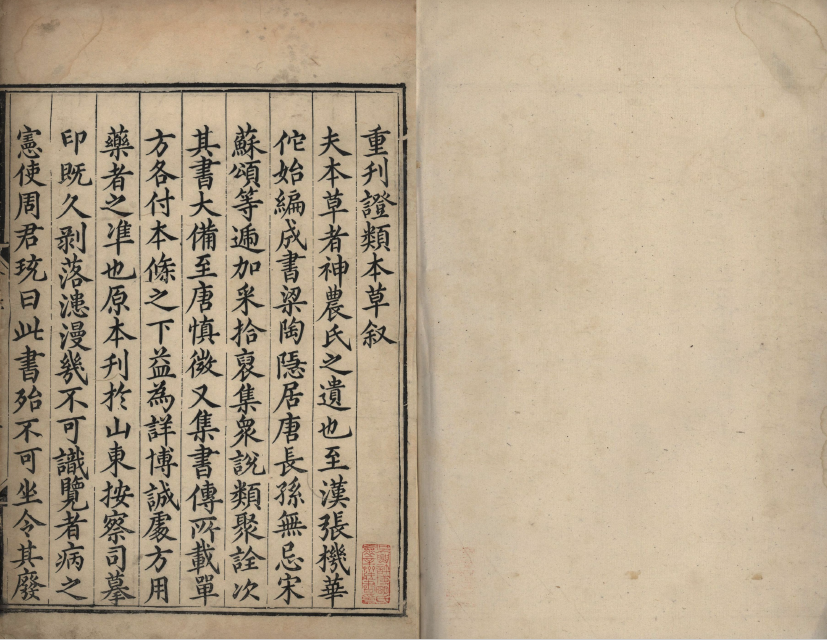 重刊證類本草叙
夫本草者神農氏之遺也至漢張機華
佗始編成書梁陶隱居唐長孫無忌宋
蘇頌等逓加采拾裒集衆說類聚詮次
其書大備至唐慎微又集書傳所載單
方各付本條之下益為詳博誠處方用
藥者之凖也原本刊於山東按察司摹
印既久剥落漶漫幾不可識覽者病之
憲使周君珫曰此書殆不可坐令其廢